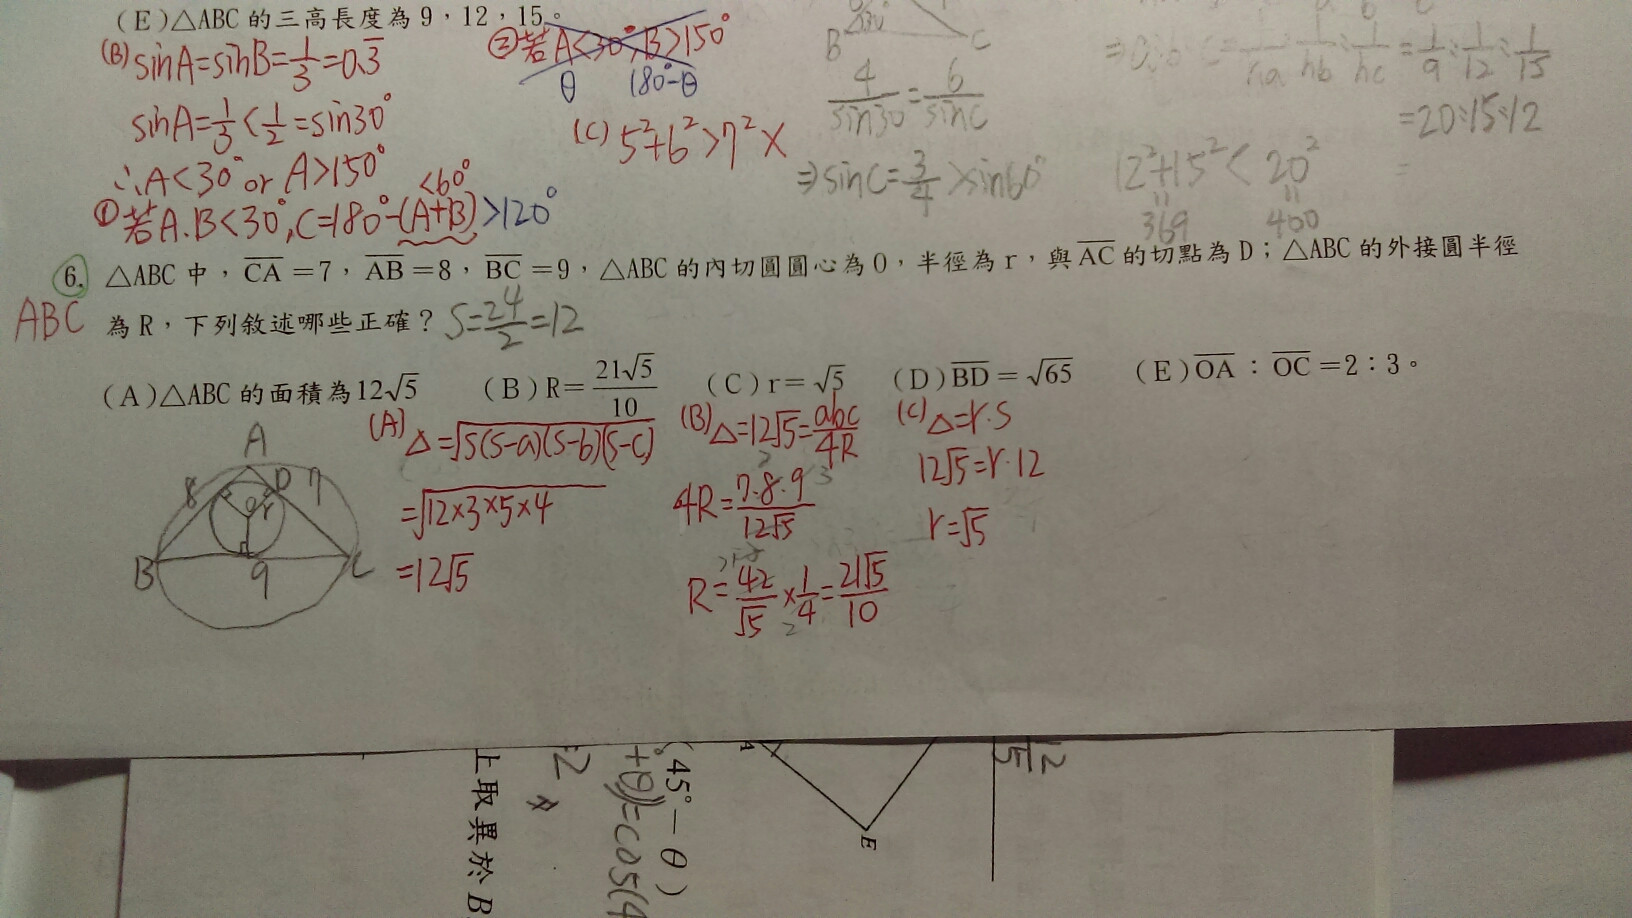 (E)△ABC 的三高長度為 9，12，15。
(B) sinA=sinB=1/3=0.3̅
sinA=1/3<1/2=sin30°
∴A<30° or A>150°
<60°
①若A.B<30°,C=180°-(A+B)>120°
②若A<30°,B>150°
θ 180°-θ
(C) 5²+6²>7² ×
B C
4/sin30=6/sinC
⇒sinC=3/4>sin60°
=1/9:1/12:1/15
=20:15:12
12²+15²<20²
369 400
6. △ABC 中，CA=7，AB=8，BC=9，△ABC 的內切圓圓心為 O，半徑為 r，與 AC 的切點為 D；△ABC 的外接圓半徑
ABC 為 R，下列敘述哪些正確？ S=24/2=12
(A)△ABC 的面積為12√5 (B)R=21√5/10 (C)r=√5 (D)BD=√65 (E)OA：OC=2：3。
(A) △=√s(s-a)(s-b)(s-c)
=√12×3×5×4
=12√5
(B) △=12√5=abc/4R
4R=7.8.9/12√5
R=42/√5×1/4=21√5/10
(C) △=r.s
12√5=r.12
r=√5
A
8 D 7
O r
B 9 C
上取異於 B
(45°－θ)
E